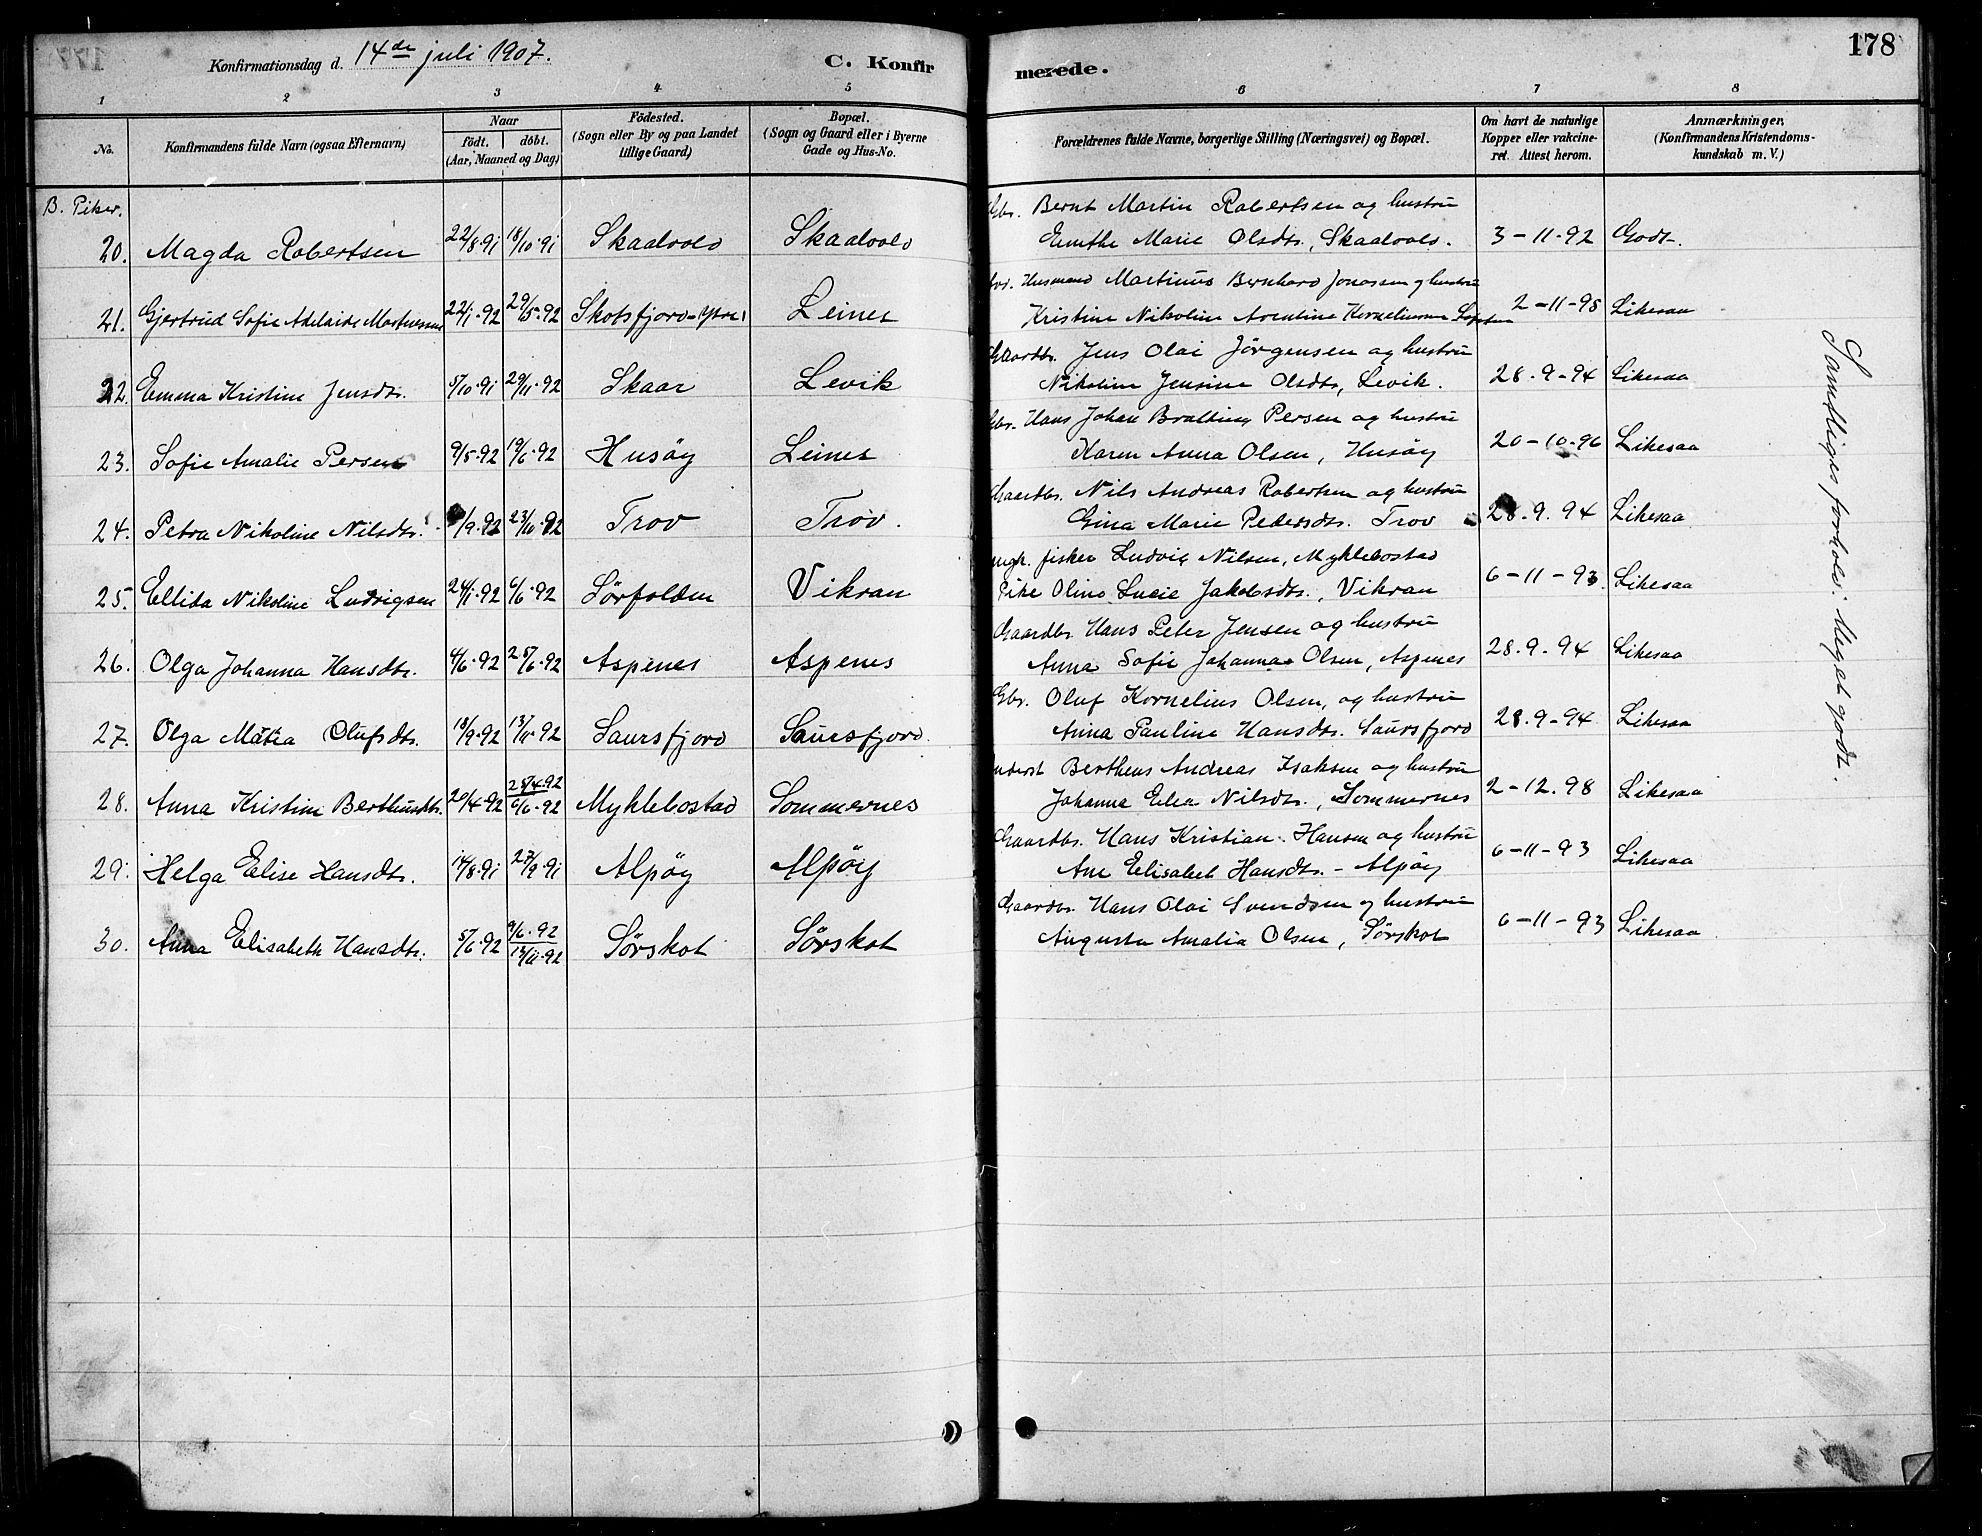 Konfirmationsdag d. 14de juli 1907.
C. Konfirmerede.
178
1 2 3 4 5 6 7 8
No.
Konfirmandens fulde Navn (ogsaa Efternavn)
Naar
födt. döbt.
(Aar, Maaned og Dag)
Födested.
(Sogn eller By og paa Landet
tillige Gaard)
Bopæl.
(Sogn og Gaard eller i Byerne
Gade og Hus-No.
Forældrenes fulde Navne, borgerlige Stilling (Næringsvei) og Bopæl.
Om havt de naturlige
Kopper eller vakcine-
ret. Attest herom.
Anmærkninger,
(Konfirmandens Kristendoms-
kundskab m. V.)
B. Piker.
Gbr. Bernt Martin Robertsen og hustru
20. Magda Robertsen 22/8.91 18/10.91 Skaalvold Skaalvold Marie Olsdtr., Skaalvold. 3-11-92 Godt.
Husmand Martinus Bernhard Jonassen og hustru
21. Gjertrud Sofie Adelaide 22/1.92 29/5.92 Skotsfjord-Ytre Leines Kristine Nikoline 2-11-98 Likesaa
Gaardbr. Jens Olai Jörgensen og hustru
22. Emma Kristine Jensdtr. 5/10.91 29/11.92 Skaar Levik Nikoline Jensine Olsdtr, Levik. 28.9-94 Likesaa
Gbr. Hans Johan Persen og hustru
23. Sofie Amalie Persen 9/5.92 19/6.92 Husöy Leines Karen Anna Olsen, Husöy 20-10-96 Likesaa
Gaardbr. Nils Andreas Robertsen og hustru
24. Petra Nikoline Nilsdtr. /9.92 23/10.92 Trov Trov. Gina Marie Pedersdtr. Trov 28.9.94 Likesaa
ungk. fisker Ludvig Nilsen, Myklebostad
25. Ellida Nikoline Ludvigsen 24/1.92 6/6.92 Sörfolden Vikran Pike Oline Lucie Jakobsdtr., Vikran 6-11-93 Likesaa
Gaardbr. Hans Peter Jensen og hustru
26. Olga Johanna Hansdtr. 4/6.92 25/6.92 Aspenes Aspenes Anna Sofie Johanna Olsen, Aspenes 28.9-94 Likesaa
Gbr. Oluf Kornelius Olsen, og hustru
27. Olga Matia Olufsdtr. 18/9.92 13/11.92 Saursfjord Saursfjord. Anna Pauline Hansdtr. Saursfjord 28.9-94 Likesaa
Bertheus Andreas Isaksen og hustru
28. Anna Kristine 20/4.92 25/4.92 6/6.92 Myklebostad Sommernes Johanna Elea Nilsdtr., Sommernes 2-12.98 Likesaa
Gaardbr. Hans Kristian Hansen og hustru
29. Helga Elise Hansdtr. 14/8.91 27/9.91 Alpöy Alpöy Ane Elisabet Hansdtr. - Alpöy 6-11-93 Likesaa
Gaardbr. Hans Olai Svendsen og hustru
30. Anna Elisabeth Hansdtr. 5/6.92 9/6.92 13/11.92 Sörskot Sörskot Augusta Amalia Olsen, Sörskot 6-11-93 Likesaa
Samtliges forhold: Meget godt.